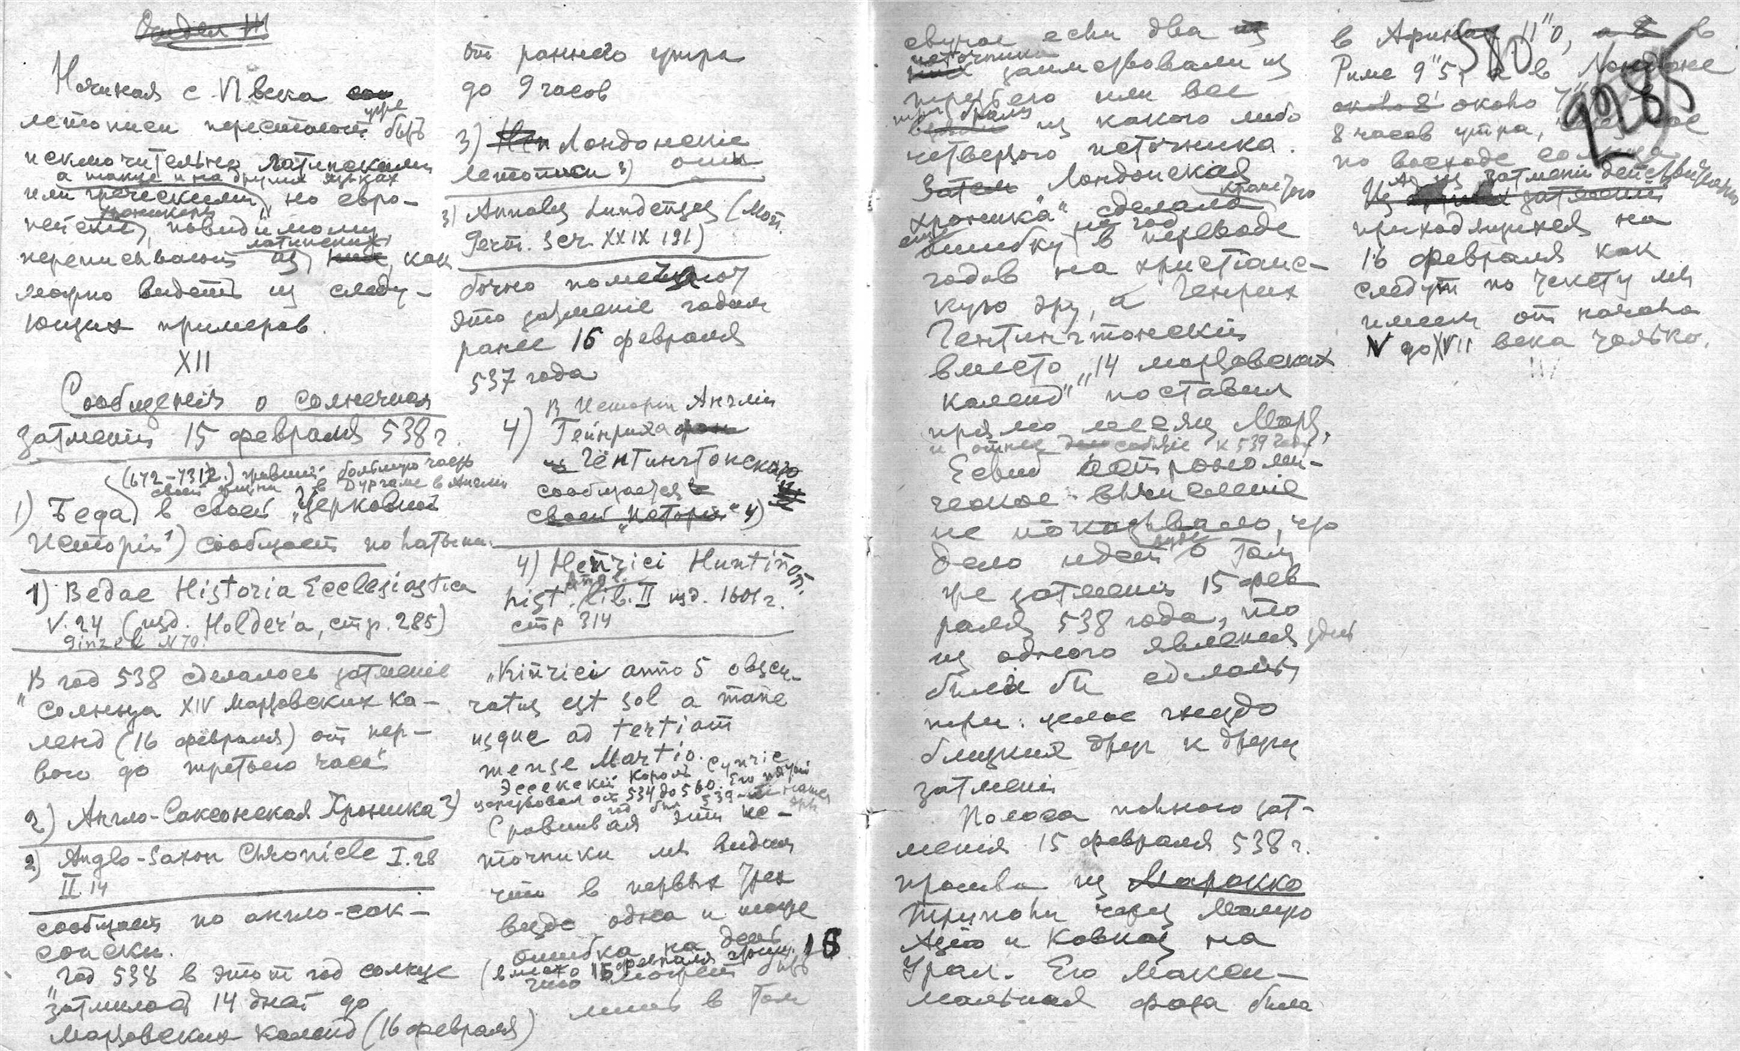 Отдел III
Начиная с VI века
летописи перестают уже быть
исключительно латинскими
а также и на других языках
или греческими, но евро-
пейские, повидимому
латинских
переписывают из них, как
можно видеть из следу-
ющих примеров.
XII
Сообщенія о солнечном
затменіи 15 февраля 538 г.
(672–731 г.) проведшій большую часть
своей жизни в Дургаме в Англіи
1) Беда в своей „Церковной
Исторіи"1) сообщает по латыни:
1) Bedae Historia Ecclesiastica
V. 24 (изд. Holder'a, стр. 285)
Ginzel N 70.
„В год 538 сделалось затменіе
солнца XIV Мартовских ка-
ленд (16 февраля) от пер-
вого до третьего часа"
2) Англо-Саксонская Хроника 2)
2) Anglo-Saxon Chronicle I. 28
II. 14
сообщает по англо-сак-
сонски.
„Год 538 в этот год солнце
затмилось 14 дней до
Мартовских календ (16 февраля)
от раннего утра
до 9 часов
3) Лондонскіе
летописи 3) оши-
3) Annales Lundenses (Mon.
Germ. Scr. XXIX 191)
бочно помещают
это затменіе годом
ранее 16 февраля
537 года
В Исторіи Англіи
4) Генриха
Гентингтонского
сообщается
своей „Исторіи" 4)
4) Henrici Huntingt.
hist. Angl. lib. II изд. 1601 г.
стр 314
„Kinrici anno 5 obscu-
ratus est sol a mane
usque ad tertiam
mense Martio. Cynric
Эссекскій король
царствовал от 534 до 560. Его пятый
год был 539
Сравнивая эти ис-
точники мы видим
что в первых трех
везде одна и таже
ошибка на день
(вместо 15 февраля 16
что может быть
лишь в том
случае если два из
источника
них заимствовали из
третьего или все
три брали
из какого либо
четвертого источника.
Затем Лондонская
хроника сделала кроме того
еще на год
ошибку в переводе
годов на христианс-
кую эру, а Генрих
Гентингтонскій
вместо „14 мартовских
календ" поставил
прямо месяц Март,
и отнес событіе к 539 году
Если б астрономи-
ческое вычисленіе
не показывало, что
дело идет о том
же затменіи 15 фев
раля 538 года, то
из одного явленія здесь
были бы сделаны
три: целое гнездо
близких друг к другу
затменій
Полоса полного зат-
менія 15 февраля 538 г.
прошла из Марокко
Триполи через Малую
Азію и Кавказ на
Урал. Его макси-
мальная фаза была
в Афинах 11"0, а в
Риме 9"5, а в Лондоне
около 8 около
8 часов утра,
по восходе солнца
580
2285
затменій действительно
приходящихся на
16 февраля как
следует по тексту мы
имеем от начала
IV до XVII века только.